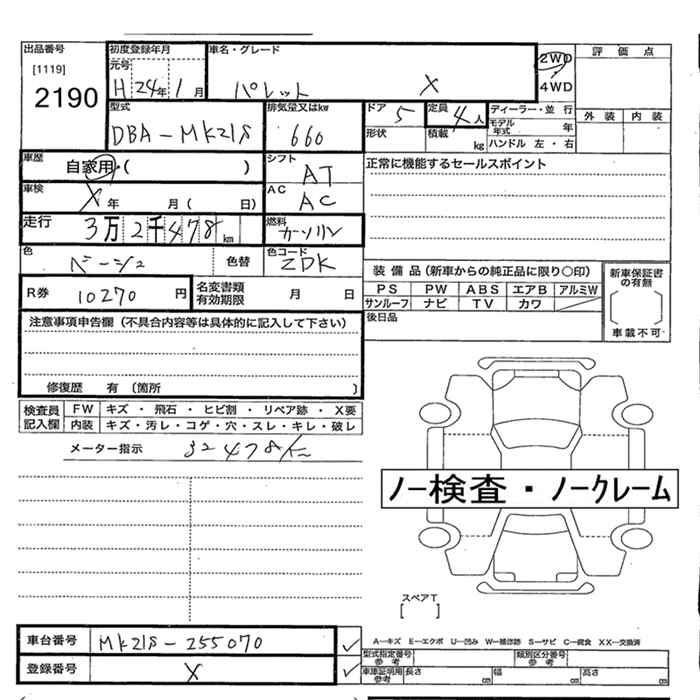 出品番号
[1119]
2190
初度登録年月
元号
H 24年 1月
車名・グレード
パレット X
2WD
4WD
評価点
外装 内装
型式
DBA-MK21S
排気量又はkw
660
ドア 5
形状
定員 4人
積載 kg
ディーラー・並行
モデル年式 年
ハンドル 左・右
車歴
自家用・( )
シフト
AT
正常に機能するセールスポイント
車検
X年 月( 日)
AC
AC
走行
3万2千478km
燃料
ガソリン
色
ベージュ
色替
色コード
ZDK
装備品(新車からの純正品に限り○印)
PS PW ABS エアB アルミW
サンルーフ ナビ TV カワ
新車保証書の有無
車載不可
R券 10270円
名変書類有効期限 月 日
後日品
注意事項申告欄(不具合内容等は具体的に記入して下さい)
修復歴 有(箇所 )
検査員記入欄
FW キズ・飛石・ヒビ割・リペア跡・X要
内装 キズ・汚レ・コゲ・穴・スレ・キレ・破レ
メーター指示 32478km
ノー検査・ノークレーム
スペアT
[ ]
車台番号 MK21S-255070
登録番号 X
A―キズ E―エクボ U―凹み W―補修跡 S―サビ C―腐食 XX―交換済
型式指定番号参考
類別区分番号参考
車庫証明用参考 長さ cm 幅 cm 高さ cm